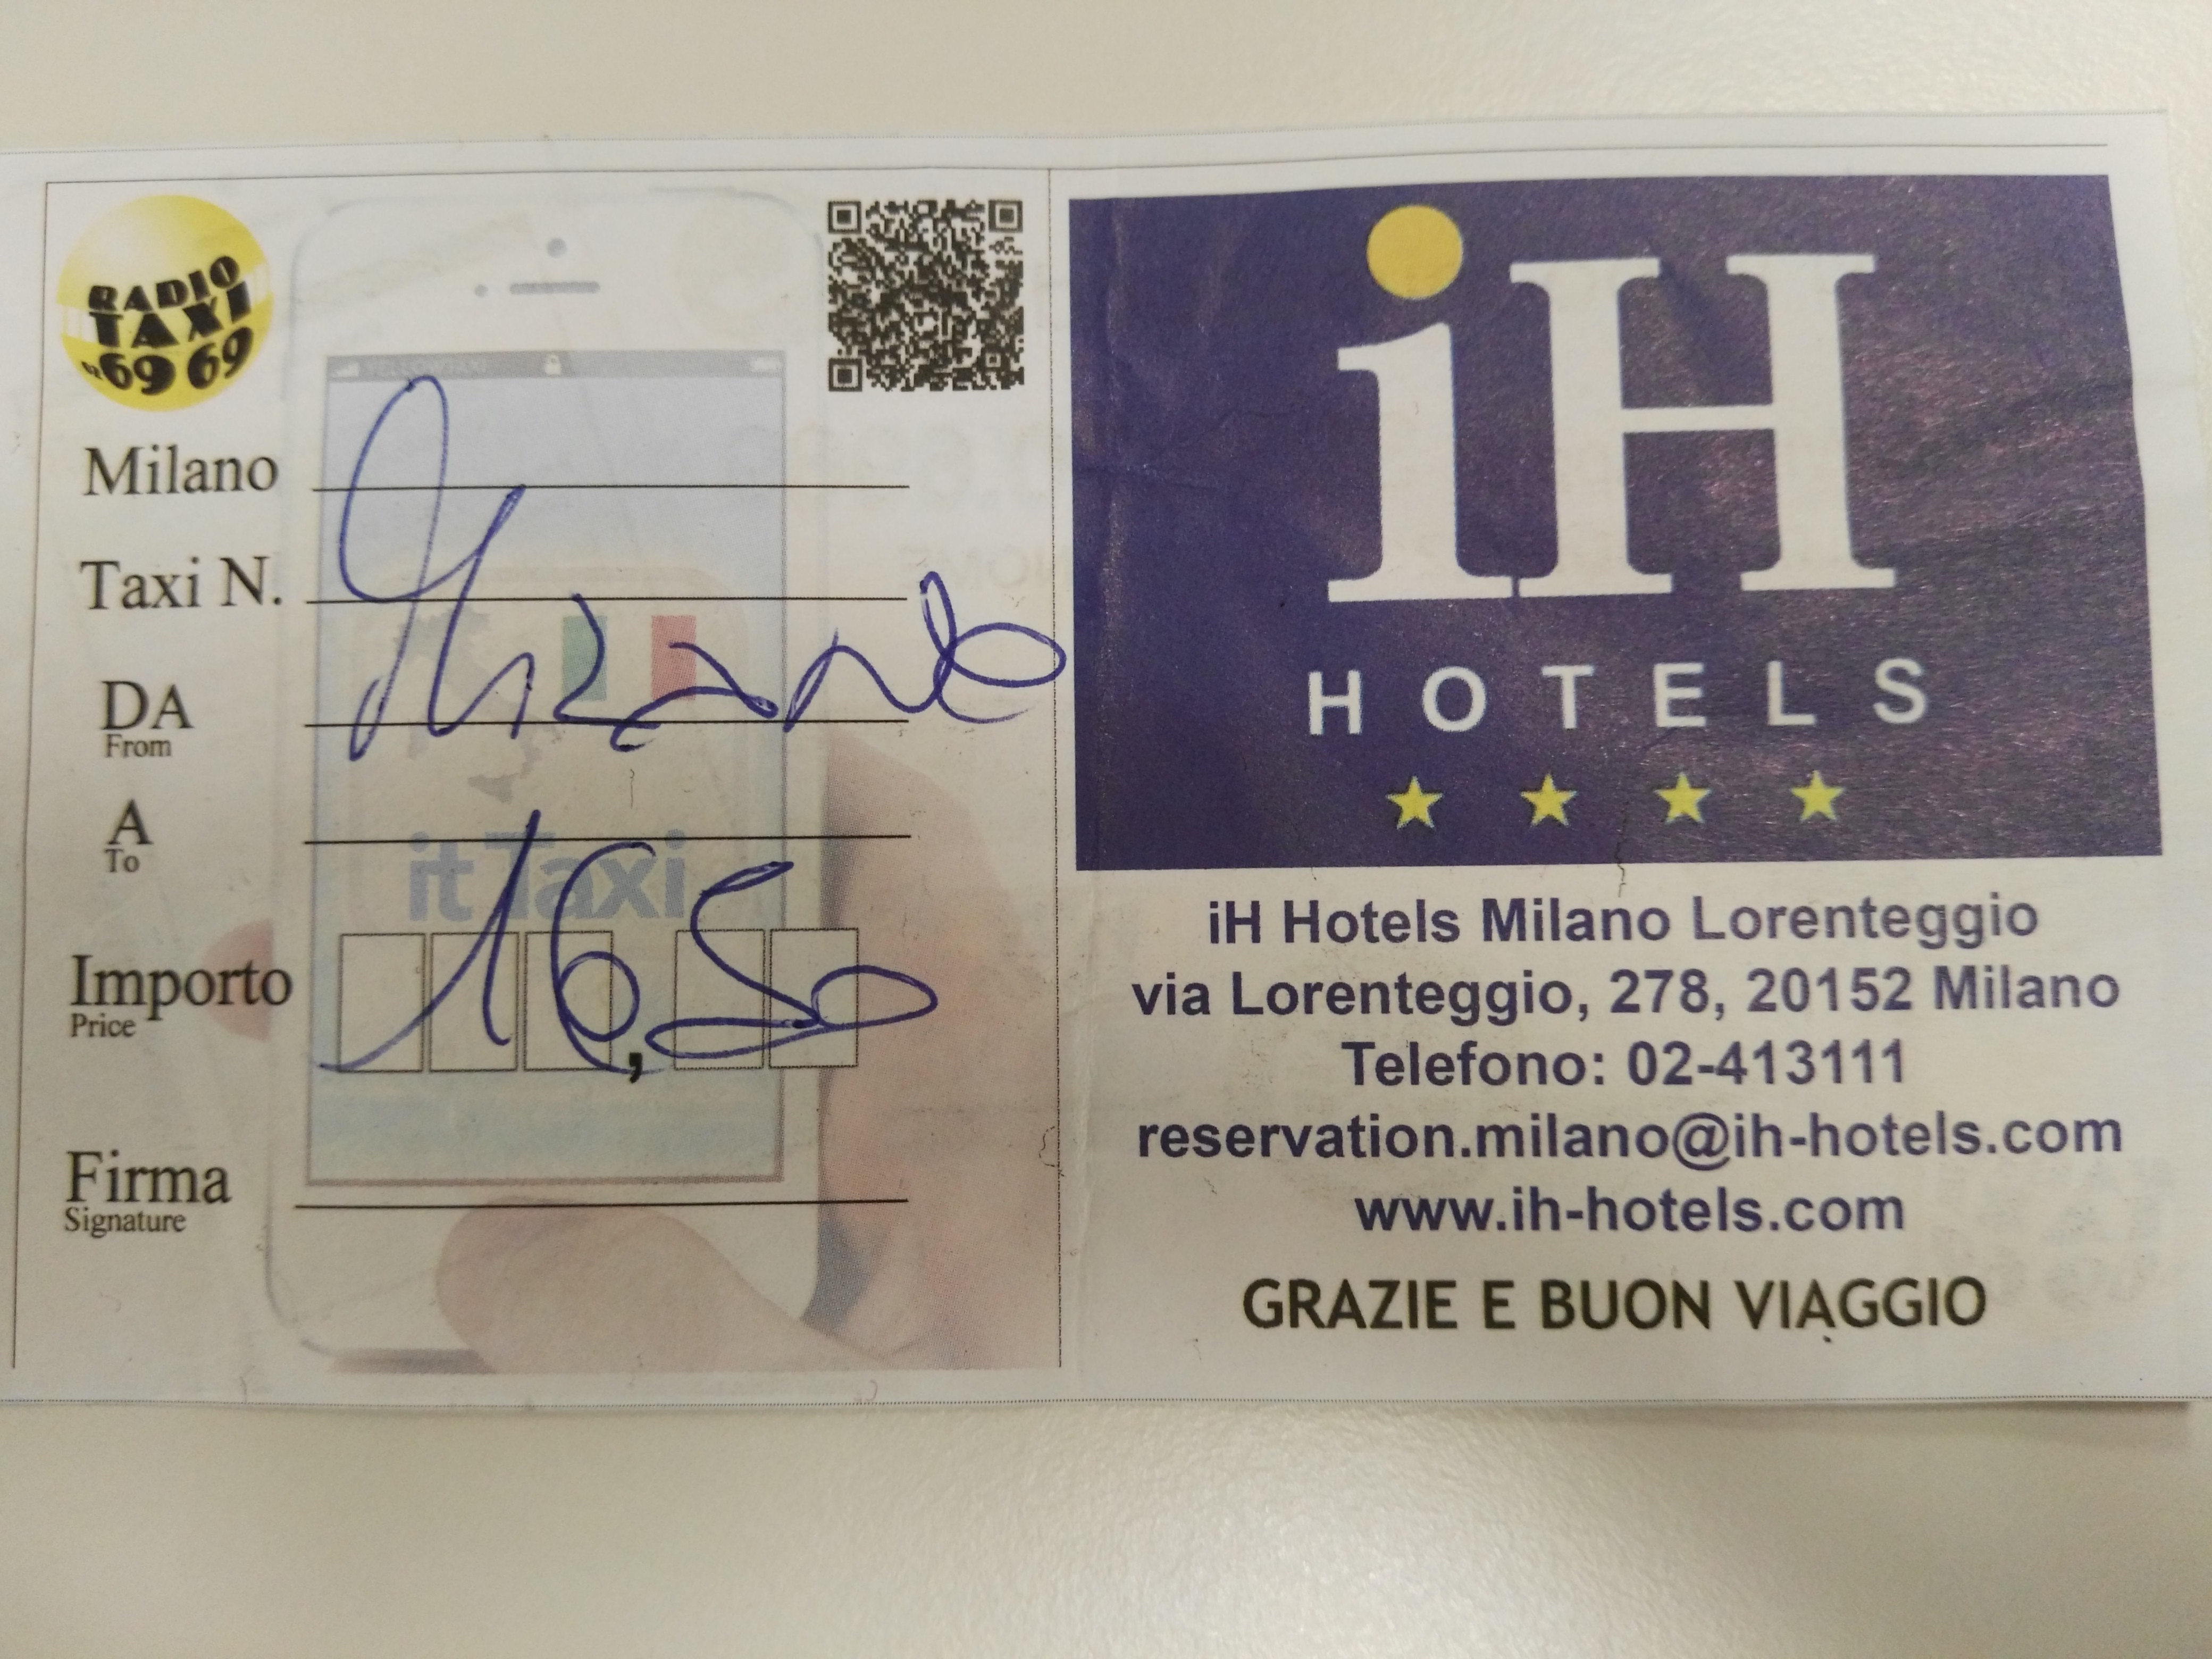 RADIO
TAXI
02 69 69
Milano
Taxi N.
DA
From
A
To
it Taxi
Importo
Price
16,50
Firma
Signature
iH
HOTELS
iH Hotels Milano Lorenteggio
via Lorenteggio, 278, 20152 Milano
Telefono: 02-413111
reservation.milano@ih-hotels.com
www.ih-hotels.com
GRAZIE E BUON VIAGGIO